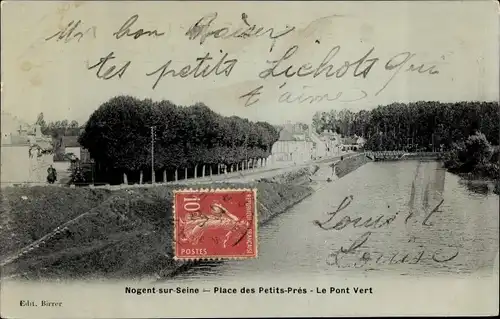 Mon bon Baiser
tes petits Lichots qui
t'aime
Louis et
Louise
10c
POSTES
Nogent-sur-Seine — Place des Petits-Prés - Le Pont Vert
Edit. Birrer